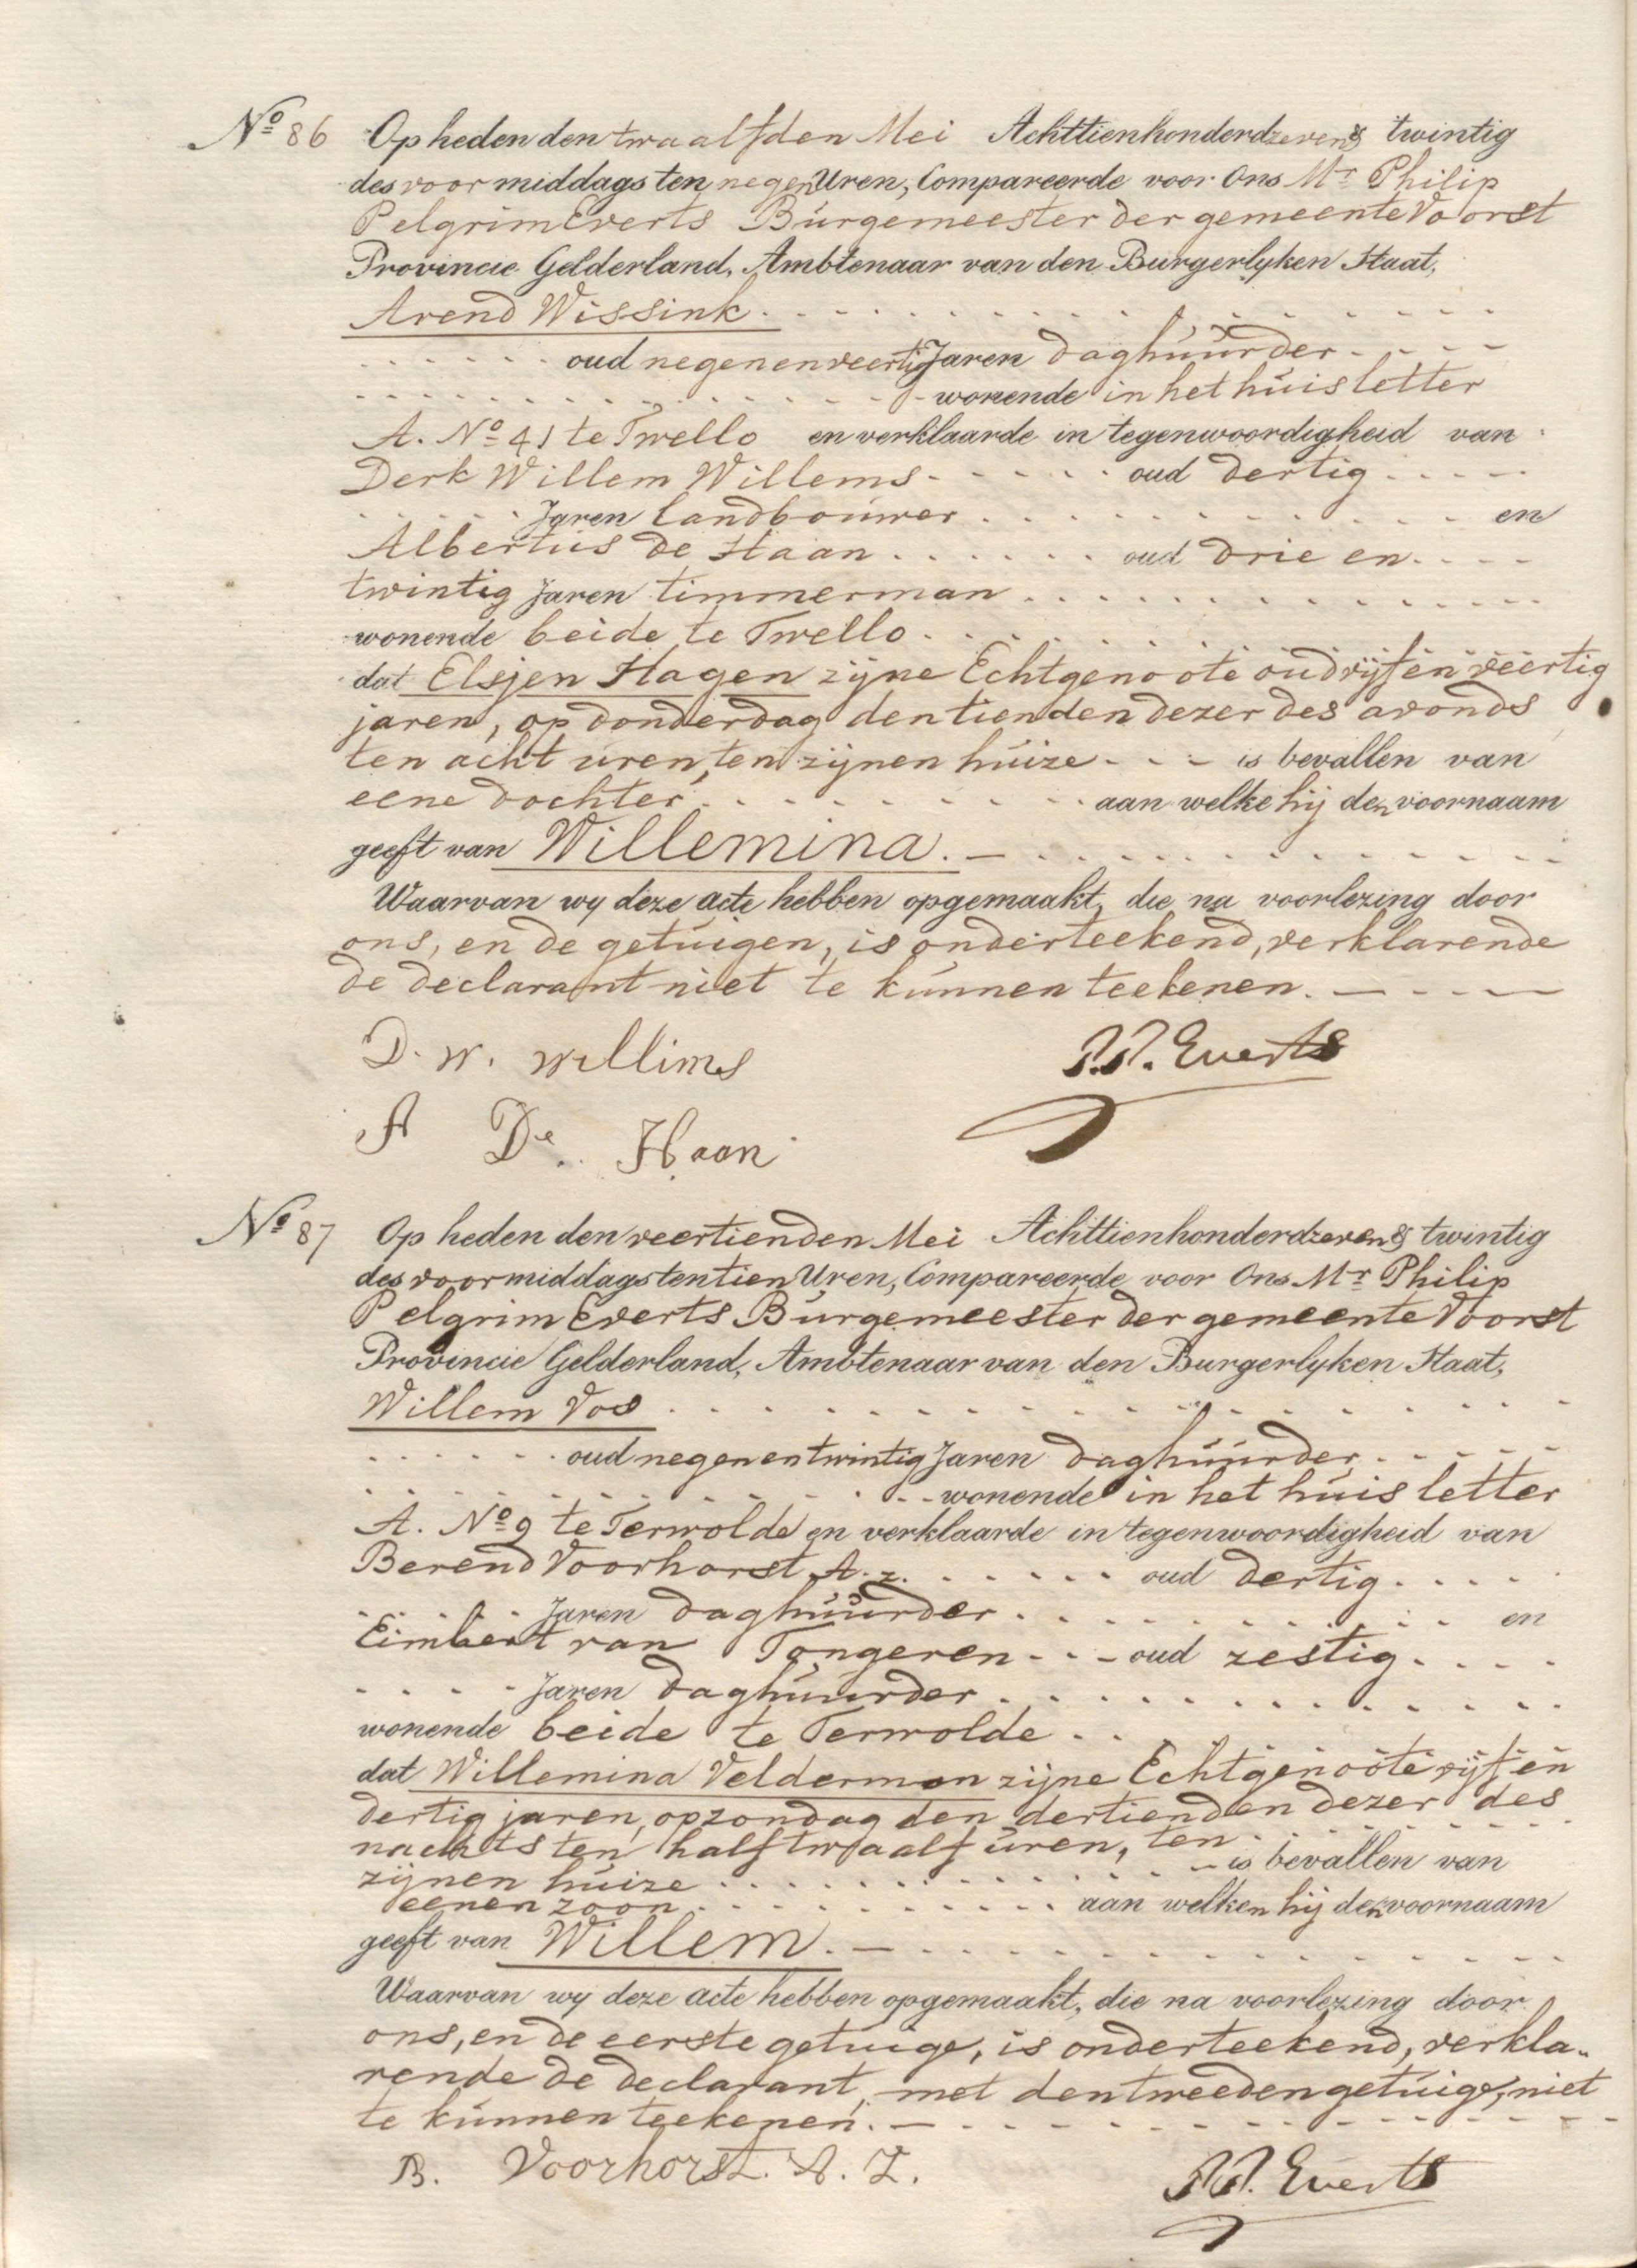 No 86 Op heden den twaalfden Mei Achttienhonderdzeven & twintig
des voormiddags ten negen Uren, Compareerde voor Ons Mr Philip
Pelgrim Everts Burgemeester der gemeente Voorst
Provincie Gelderland, Ambtenaar van den Burgerlyken Staat,
Arend Wissink
oud negenenveertig Jaren daghuurder
wonende in het huis letter
A. No 41 te Twello en verklaarde in tegenwoordigheid van
Derk Willem Willems oud dertig
Jaren landbouwer en
Albertus de Haan oud drie en
twintig Jaren timmerman
wonende beide te Twello
dat Elsjen Hagen zijne Echtgenoote oud vijf en veertig
jaren, op donderdag den tienden dezer des avonds
ten acht uren, ten zijnen huize is bevallen van
eene dochter aan welke hij den voornaam
geeft van Willemina.
Waarvan wy deze acte hebben opgemaakt, die na voorlezing door
ons, en de getuigen, is onderteekend, verklarende
de declarant niet te kunnen teekenen.
D. W. Willims P.P. Everts
A De Haan
No 87 Op heden den veertienden Mei Achttienhonderdzeven & twintig
des voormiddags ten tien Uren, Compareerde voor Ons Mr Philip
Pelgrim Everts Burgemeester der gemeente Voorst
Provincie Gelderland, Ambtenaar van den Burgerlyken Staat,
Willem Vos
oud negenentwintig Jaren daghuurder
wonende in het huis letter
A. No 9 te Terwolde en verklaarde in tegenwoordigheid van
Berend Voorhorst A.z. oud dertig
Jaren daghuurder en
Eimbert van Tongeren oud zestig
Jaren daghuurder
wonende beide te Terwolde
dat Willemina Velderman zijne Echtgenoote vijf en
dertig jaren, op zondag den dertienden dezer des
nachts ten half twaalf uren, ten
zijnen huize is bevallen van
eenen zoon aan welken hij den voornaam
geeft van Willem.
Waarvan wy deze acte hebben opgemaakt, die na voorlezing door
ons, en de eerste getuige, is onderteekend, verkla-
rende de declarant, met den tweeden getuige, niet
te kunnen teekenen.
B. Voorhorst. A. Z. P.P. Everts